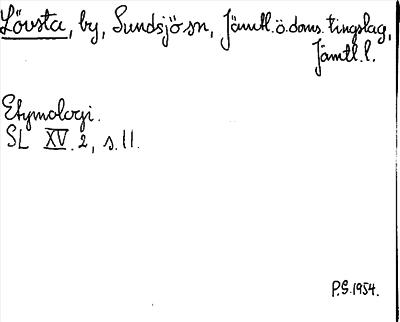 Lövsta, by, Sundsjö sn, Jämtl. ö. doms. tingslag,
Jämtl. l.
Etymologi.
SL XV. 2, s. 11.
P.G. 1954.